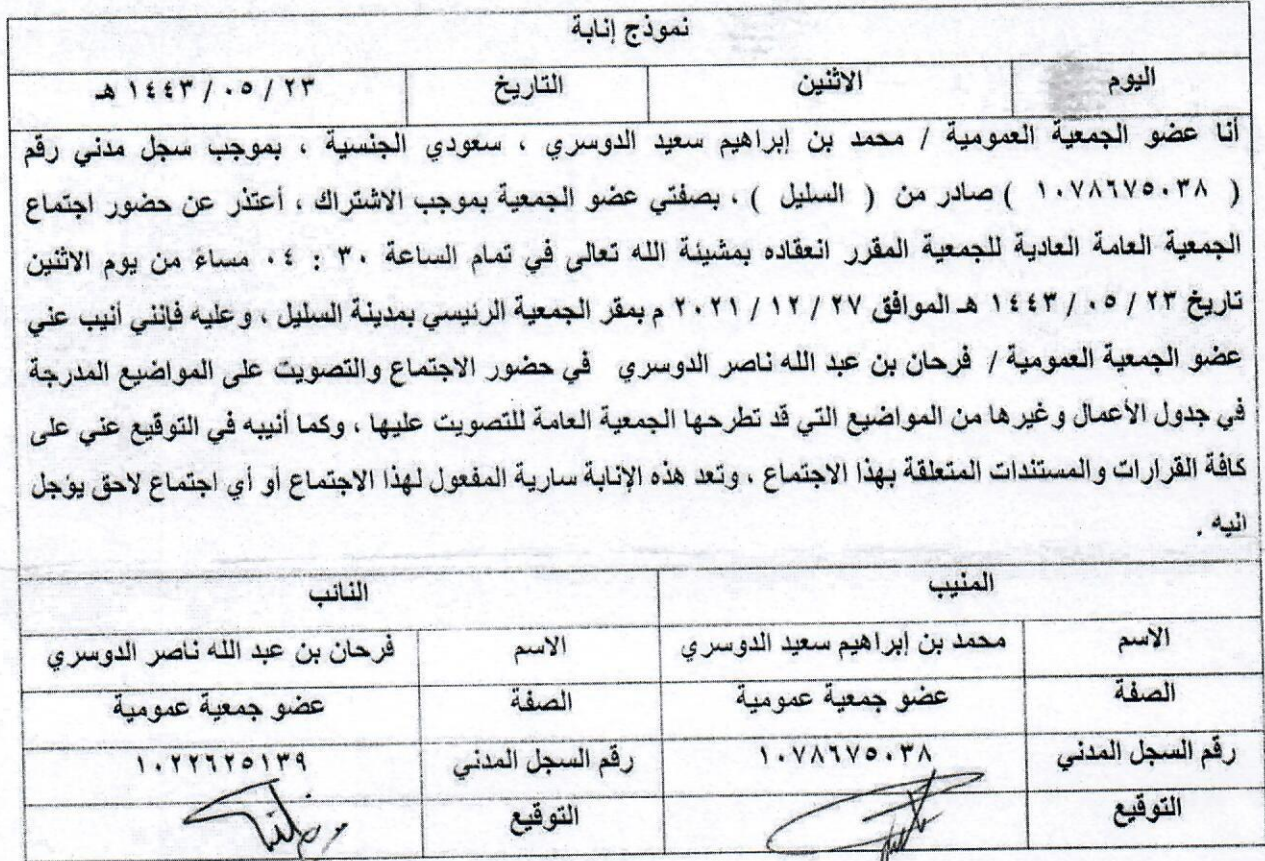 نموذج إنابة
اليوم الاثنين التاريخ ٢٣ / ٠٥ / ١٤٤٣ هـ
أنا عضو الجمعية العمومية / محمد بن إبراهيم سعيد الدوسري ، سعودي الجنسية ، بموجب سجل مدني رقم
( ١٠٧٨٦٧٥٠٣٨ ) صادر من ( السليل ) ، بصفتي عضو الجمعية بموجب الاشتراك ، أعتذر عن حضور اجتماع
الجمعية العامة العادية للجمعية المقرر انعقاده بمشيئة الله تعالى في تمام الساعة ٣٠ : ٠٤ مساءً من يوم الاثنين
تاريخ ٢٣ / ٠٥ / ١٤٤٣ هـ الموافق ٢٧ / ١٢ / ٢٠٢١ م بمقر الجمعية الرئيسي بمدينة السليل ، وعليه فإنني أنيب عني
عضو الجمعية العمومية / فرحان بن عبد الله ناصر الدوسري في حضور الاجتماع والتصويت على المواضيع المدرجة
في جدول الأعمال وغيرها من المواضيع التي قد تطرحها الجمعية العامة للتصويت عليها ، وكما أنيبه في التوقيع عني على
كافة القرارات والمستندات المتعلقة بهذا الاجتماع ، وتعد هذه الإنابة سارية المفعول لهذا الاجتماع أو أي اجتماع لاحق يؤجل
اليه .
المنيب النائب
الاسم محمد بن إبراهيم سعيد الدوسري الاسم فرحان بن عبد الله ناصر الدوسري
الصفة عضو جمعية عمومية الصفة عضو جمعية عمومية
رقم السجل المدني ١٠٧٨٦٧٥٠٣٨ رقم السجل المدني ١٠٢٢٦٢٥١٣٩
التوقيع التوقيع